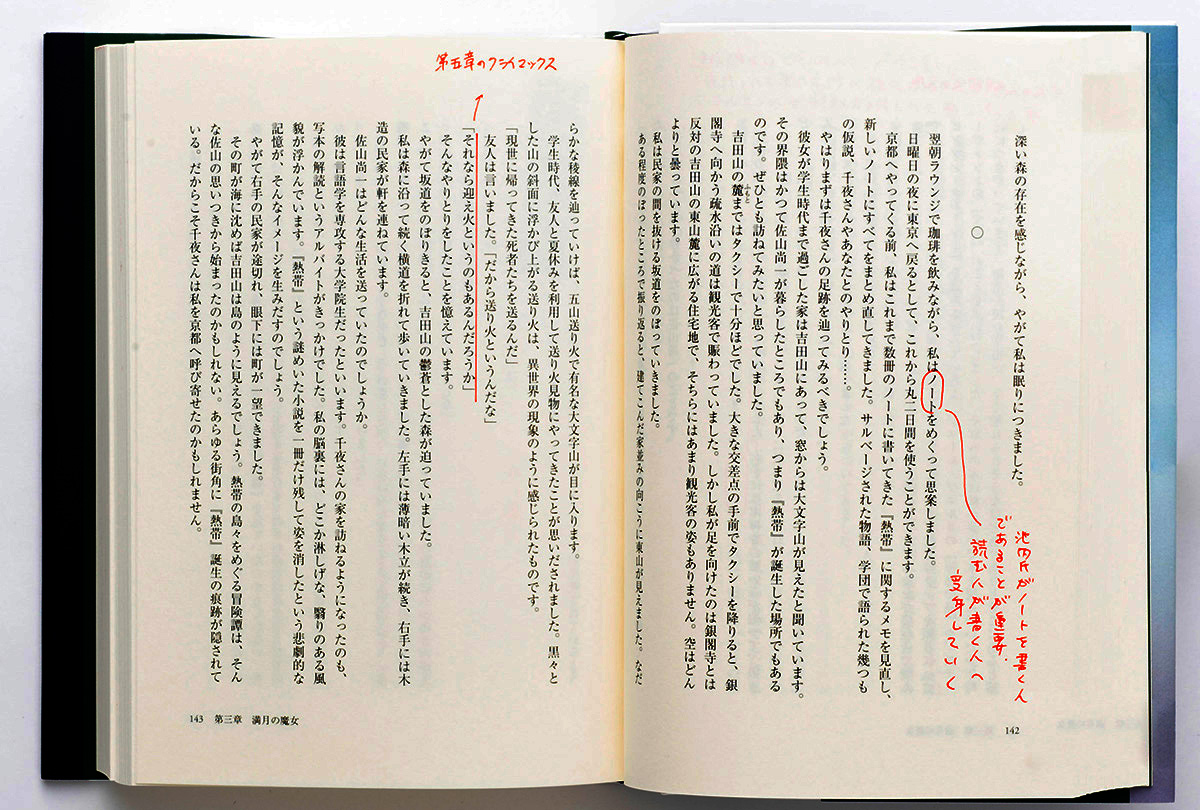 深い森の存在を感じながら、やがて私は眠りにつきました。
○
翌朝ラウンジで珈琲を飲みながら、私はノートをめくって思案しました。
日曜日の夜に東京へ戻るとして、これから丸二日間を使うことができます。
京都へやってくる前、私はこれまで数冊のノートに書いてきた『熱帯』に関するメモを見直し、
新しいノートにすべてをまとめ直してきました。サルベージされた物語、学団で語られた幾つも
の仮説、千夜さんやあなたとのやりとり……。
やはりまずは千夜さんの足跡を辿ってみるべきでしょう。
彼女が学生時代まで過ごした家は吉田山にあって、窓からは大文字山が見えたと聞いています。
その界隈はかつて佐山尚一が暮らしたところでもあり、つまり『熱帯』が誕生した場所でもある
のです。ぜひとも訪ねてみたいと思っていました。
吉田山の麓ふもとまではタクシーで十分ほどでした。大きな交差点の手前でタクシーを降りると、銀
閣寺へ向かう疏水沿いの道は観光客で賑わっていました。しかし私が足を向けたのは銀閣寺とは
反対の吉田山の東山麓に広がる住宅地で、そちらにはあまり観光客の姿もありません。空はどん
よりと曇っています。
私は民家の間を抜ける坂道をのぼっていきました。
ある程度のぼったところで振り返ると、建てこんだ家並みの向こうに東山が見えました。なだ
池内氏がノートを書く人
であることが重要。
読む人が書く人へ
変身していく
142
第五章のクライマックス
らかな稜線を辿っていけば、五山送り火で有名な大文字山が目に入ります。
学生時代、友人と夏休みを利用して送り火見物にやってきたことが思いだされました。黒々と
した山の斜面に浮かび上がる送り火は、異世界の現象のように感じられたものです。
「現世に帰ってきた死者たちを送るんだ」
友人は言いました。「だから送り火というんだな」
「それなら迎え火というのもあるんだろうか」
そんなやりとりをしたことを憶えています。
やがて坂道をのぼりきると、吉田山の鬱蒼とした森が迫っていました。
私は森に沿って続く横道を折れて歩いていきました。左手には薄暗い木立が続き、右手には木
造の民家が軒を連ねています。
佐山尚一はどんな生活を送っていたのでしょうか。
彼は言語学を専攻する大学院生だったといいます。千夜さんの家を訪ねるようになったのも、
写本の解読というアルバイトがきっかけでした。私の脳裏には、どこか淋しげな、翳りのある風
貌が浮かんでいます。『熱帯』という謎めいた小説を一冊だけ残して姿を消したという悲劇的な
記憶が、そんなイメージを生みだすのでしょう。
やがて右手の民家が途切れ、眼下には町が一望できました。
その町が海に沈めば吉田山は島のように見えるでしょう。熱帯の島々をめぐる冒険譚は、そん
な佐山の思いつきから始まったのかもしれない。あらゆる街角に『熱帯』誕生の痕跡が隠されて
いる。だからこそ千夜さんは私を京都へ呼び寄せたのかもしれません。
143 第三章 満月の魔女